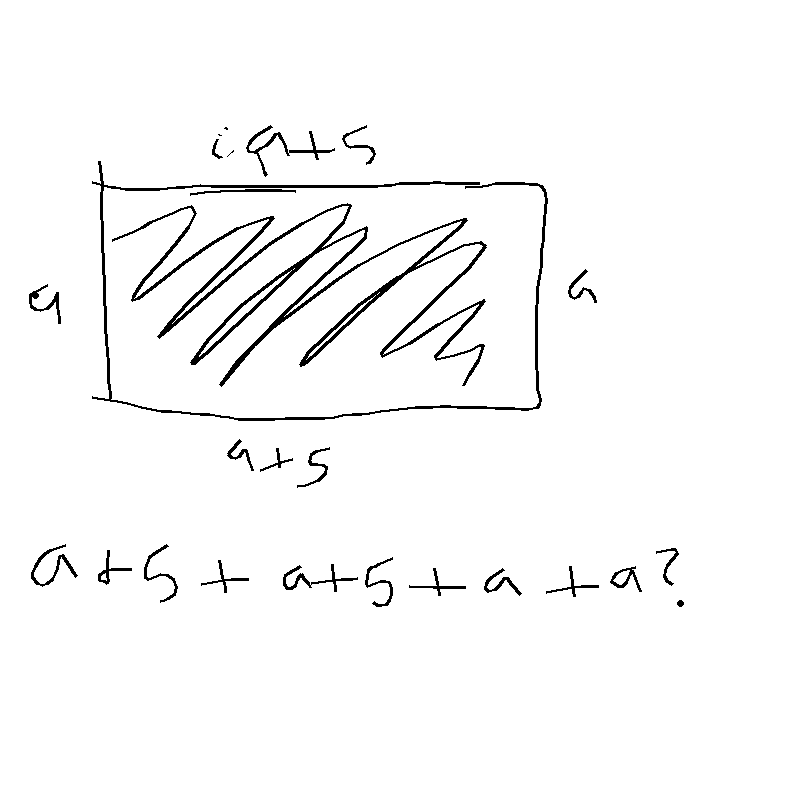 a+5
a
a
a+5
a+5 + a+5 + a + a?